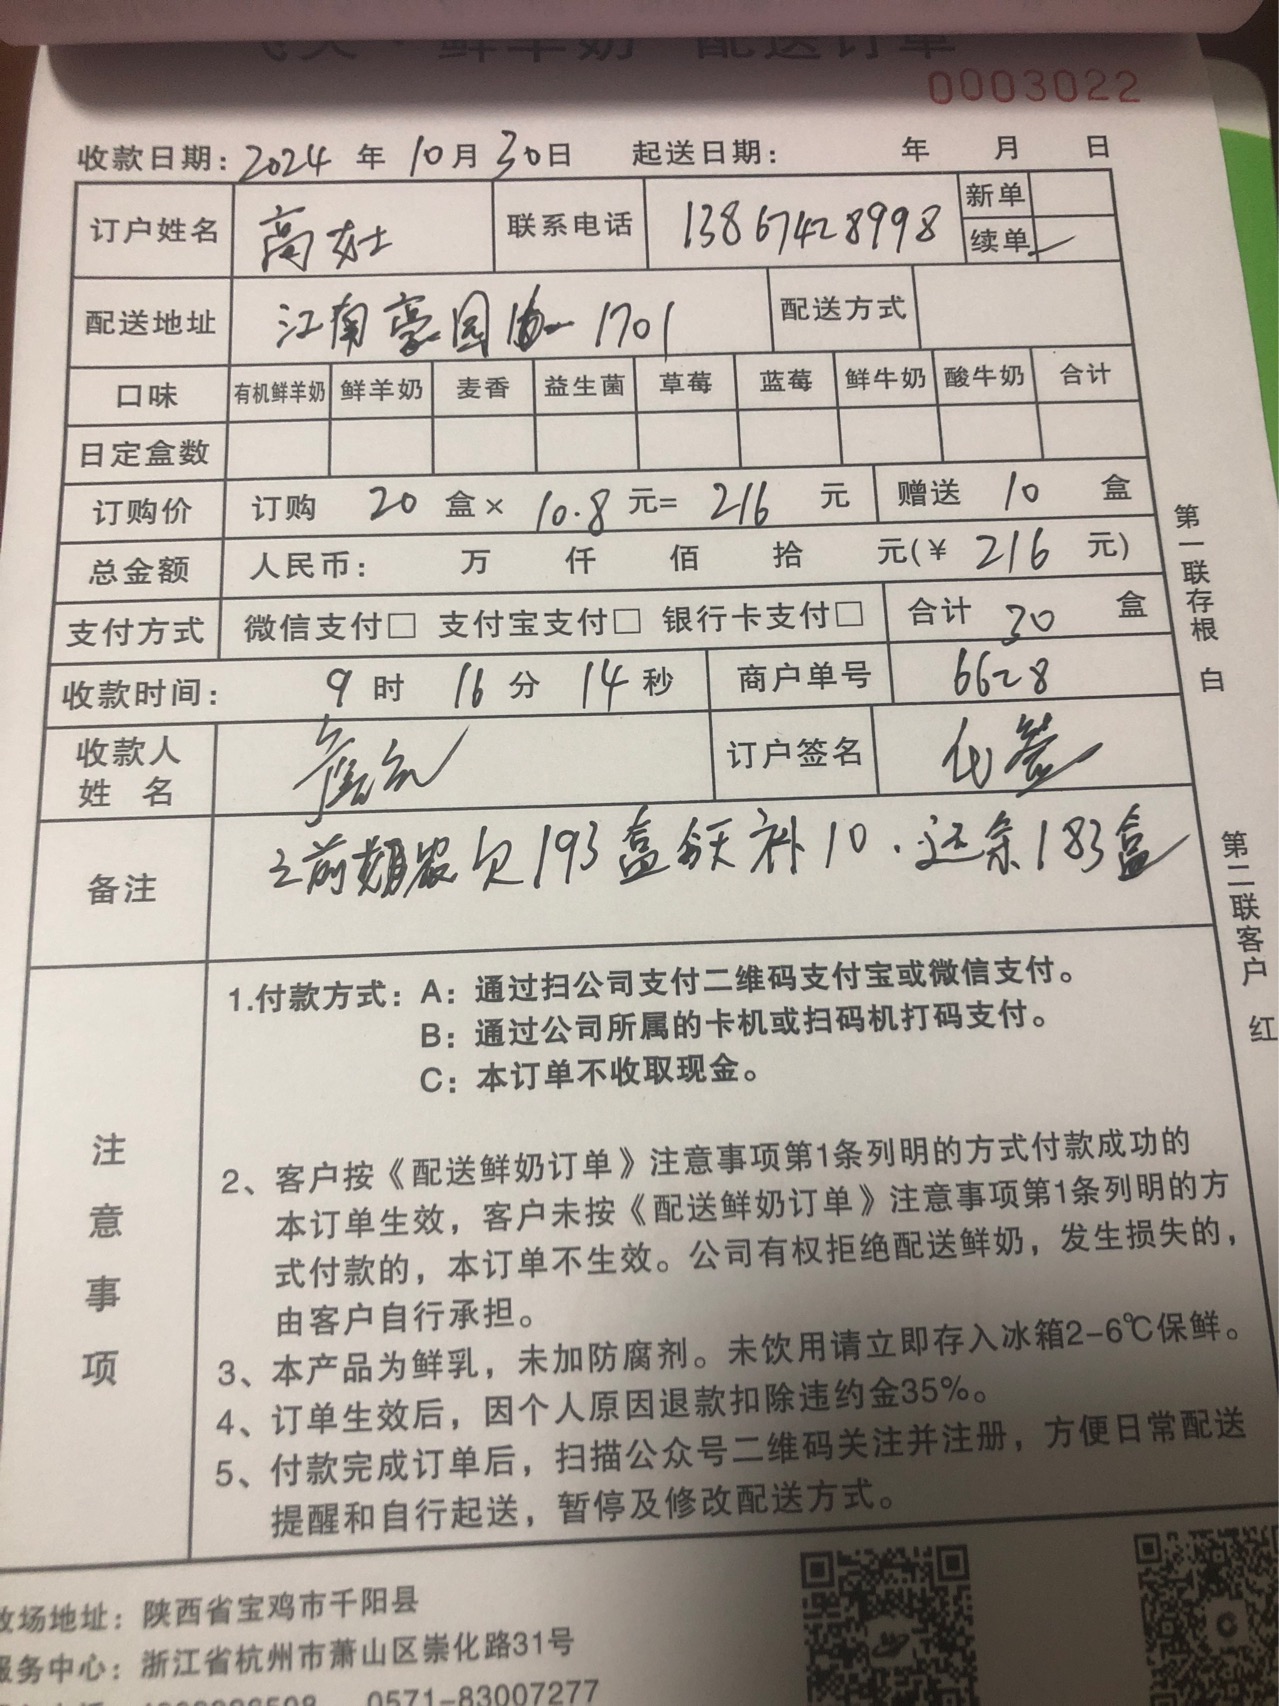 鲜羊奶 配送订单
0003022
收款日期：2024 年 10月 30日 起送日期： 年 月 日
订户姓名 高女士 联系电话 13867428998 新单
续单 ✓
配送地址 江南豪园 1701 配送方式
口味 有机鲜羊奶 鲜羊奶 麦香 益生菌 草莓 蓝莓 鲜牛奶 酸牛奶 合计
日定盒数
订购价 订购 20 盒× 10.8 元= 216 元 赠送 10 盒
总金额 人民币： 万 仟 佰 拾 元(￥ 216 元)
支付方式 微信支付□ 支付宝支付□ 银行卡支付□ 合计 30 盒
收款时间： 9 时 16 分 14 秒 商户单号 6628
收款人
姓 名 订户签名 代签
备注 之前 欠193盒 补10．还余183盒
注意事项
1.付款方式：A：通过扫公司支付二维码支付宝或微信支付。
B：通过公司所属的卡机或扫码机打码支付。
C：本订单不收取现金。
2、客户按《配送鲜奶订单》注意事项第1条列明的方式付款成功的
本订单生效，客户未按《配送鲜奶订单》注意事项第1条列明的方
式付款的，本订单不生效。公司有权拒绝配送鲜奶，发生损失的，
由客户自行承担。
3、本产品为鲜乳，未加防腐剂。未饮用请立即存入冰箱2-6℃保鲜。
4、订单生效后，因个人原因退款扣除违约金35%。
5、付款完成订单后，扫描公众号二维码关注并注册，方便日常配送
提醒和自行起送，暂停及修改配送方式。
第一联存根 白
第二联客户 红
牧场地址：陕西省宝鸡市千阳县
服务中心：浙江省杭州市萧山区崇化路31号
0571-83007277